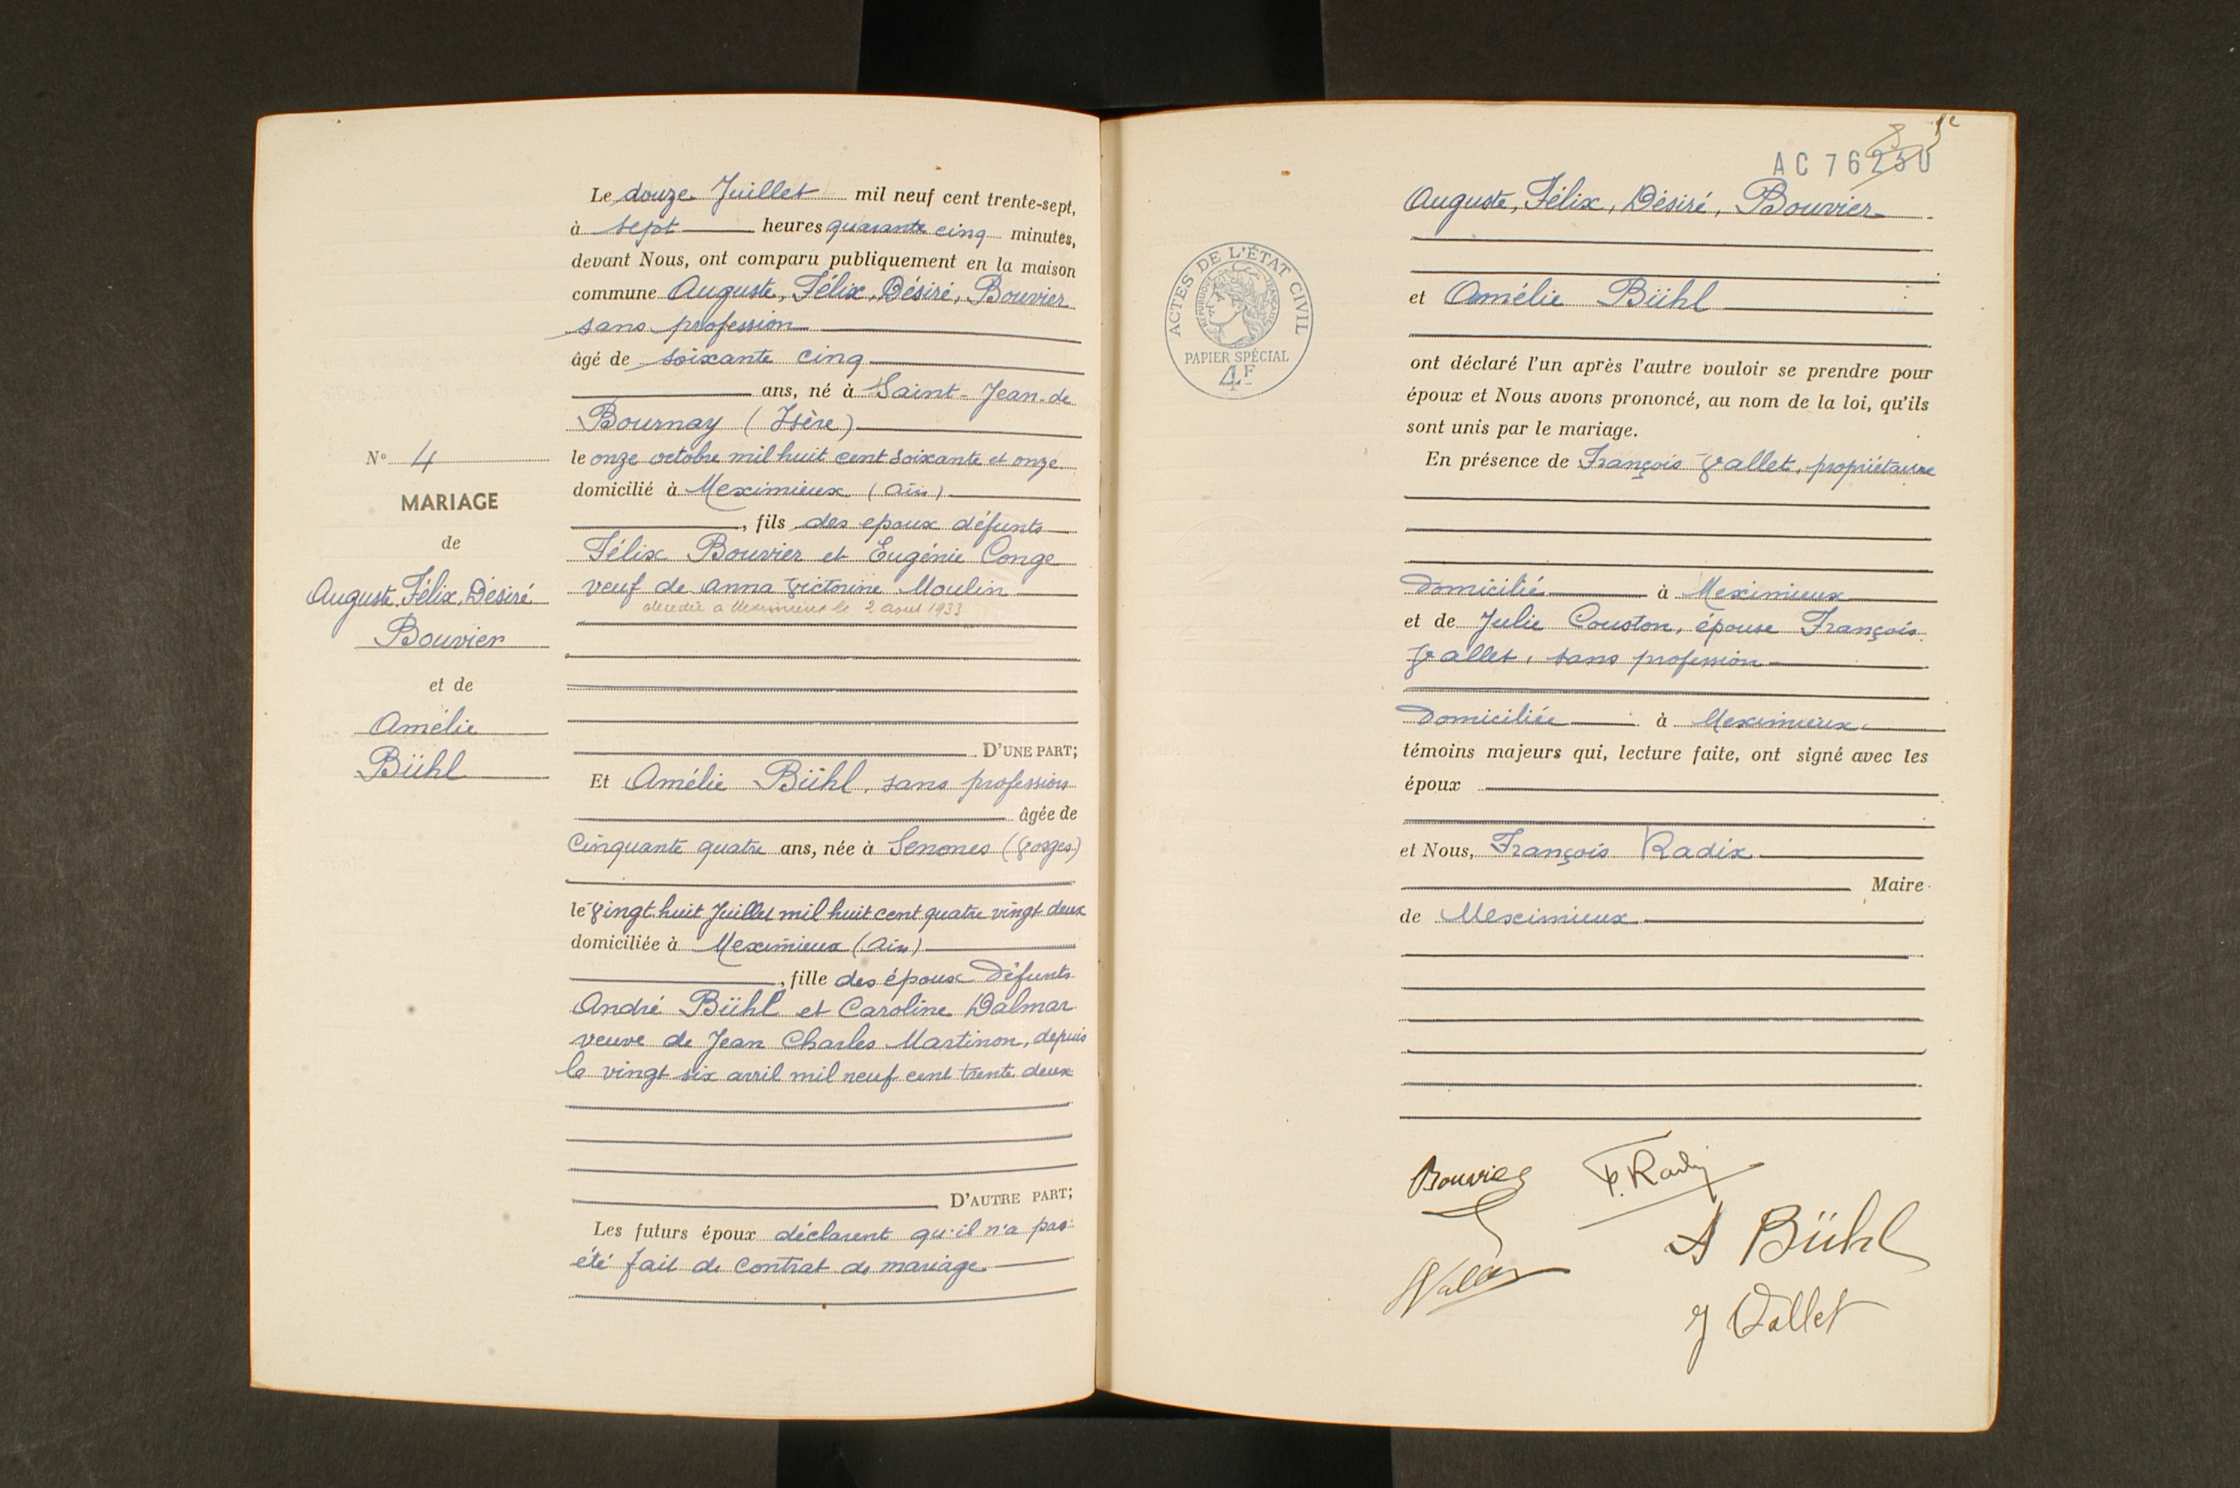 N° 4
MARIAGE
de
Auguste, Félix, Désiré
Bouvier
et de
Amélie
Bühl
Le douze Juillet mil neuf cent trente-sept,
à sept heures quarante cinq minutes,
devant Nous, ont comparu publiquement en la maison
commune Auguste, Félix, Désiré, Bouvier
sans profession
âgé de soixante cinq
ans, né à Saint-Jean-de
Bournay (Isère)
le onze octobre mil huit cent soixante et onze
domicilié à Meximieux (Ain)
, fils des epoux défunts
Félix Bouvier et Eugénie Conge
veuf de Anna Victorine Moulin
décédée a Meximieux le 2 aout 1933
D'UNE PART;
Et Amélie Bühl, sans profession
âgée de
Cinquante quatre ans, née à Senones (Vosges)
le Vingt huit Juillet mil huit cent quatre vingt deux
domiciliée à Meximieux (Ain)
, fille des époux Défunts
André Bühl et Caroline Dalmar
veuve de Jean Charles Martinon, depuis
le vingt six avril mil neuf cent trente deux
D'AUTRE PART;
Les futurs époux déclarent qu'il n'a pas
été fait de contrat de mariage
AC 76250
ACTES DE L'ÉTAT CIVIL
RÉPUBLIQUE FRANÇAISE
PAPIER SPÉCIAL
4F
Auguste, Félix, Désiré, Bouvier
et Amélie Bühl
ont déclaré l'un après l'autre vouloir se prendre pour
époux et Nous avons prononcé, au nom de la loi, qu'ils
sont unis par le mariage.
En présence de François Vallet, propriétaire
Domicilié à Meximieux
et de Julie Couston, épouse François
Vallet, sans profession
Domiciliée à Meximieux
témoins majeurs qui, lecture faite, ont signé avec les
époux
et Nous, François Radix
Maire
de Meximieux
Bouvier F. Radix
A Bühl
J Vallet